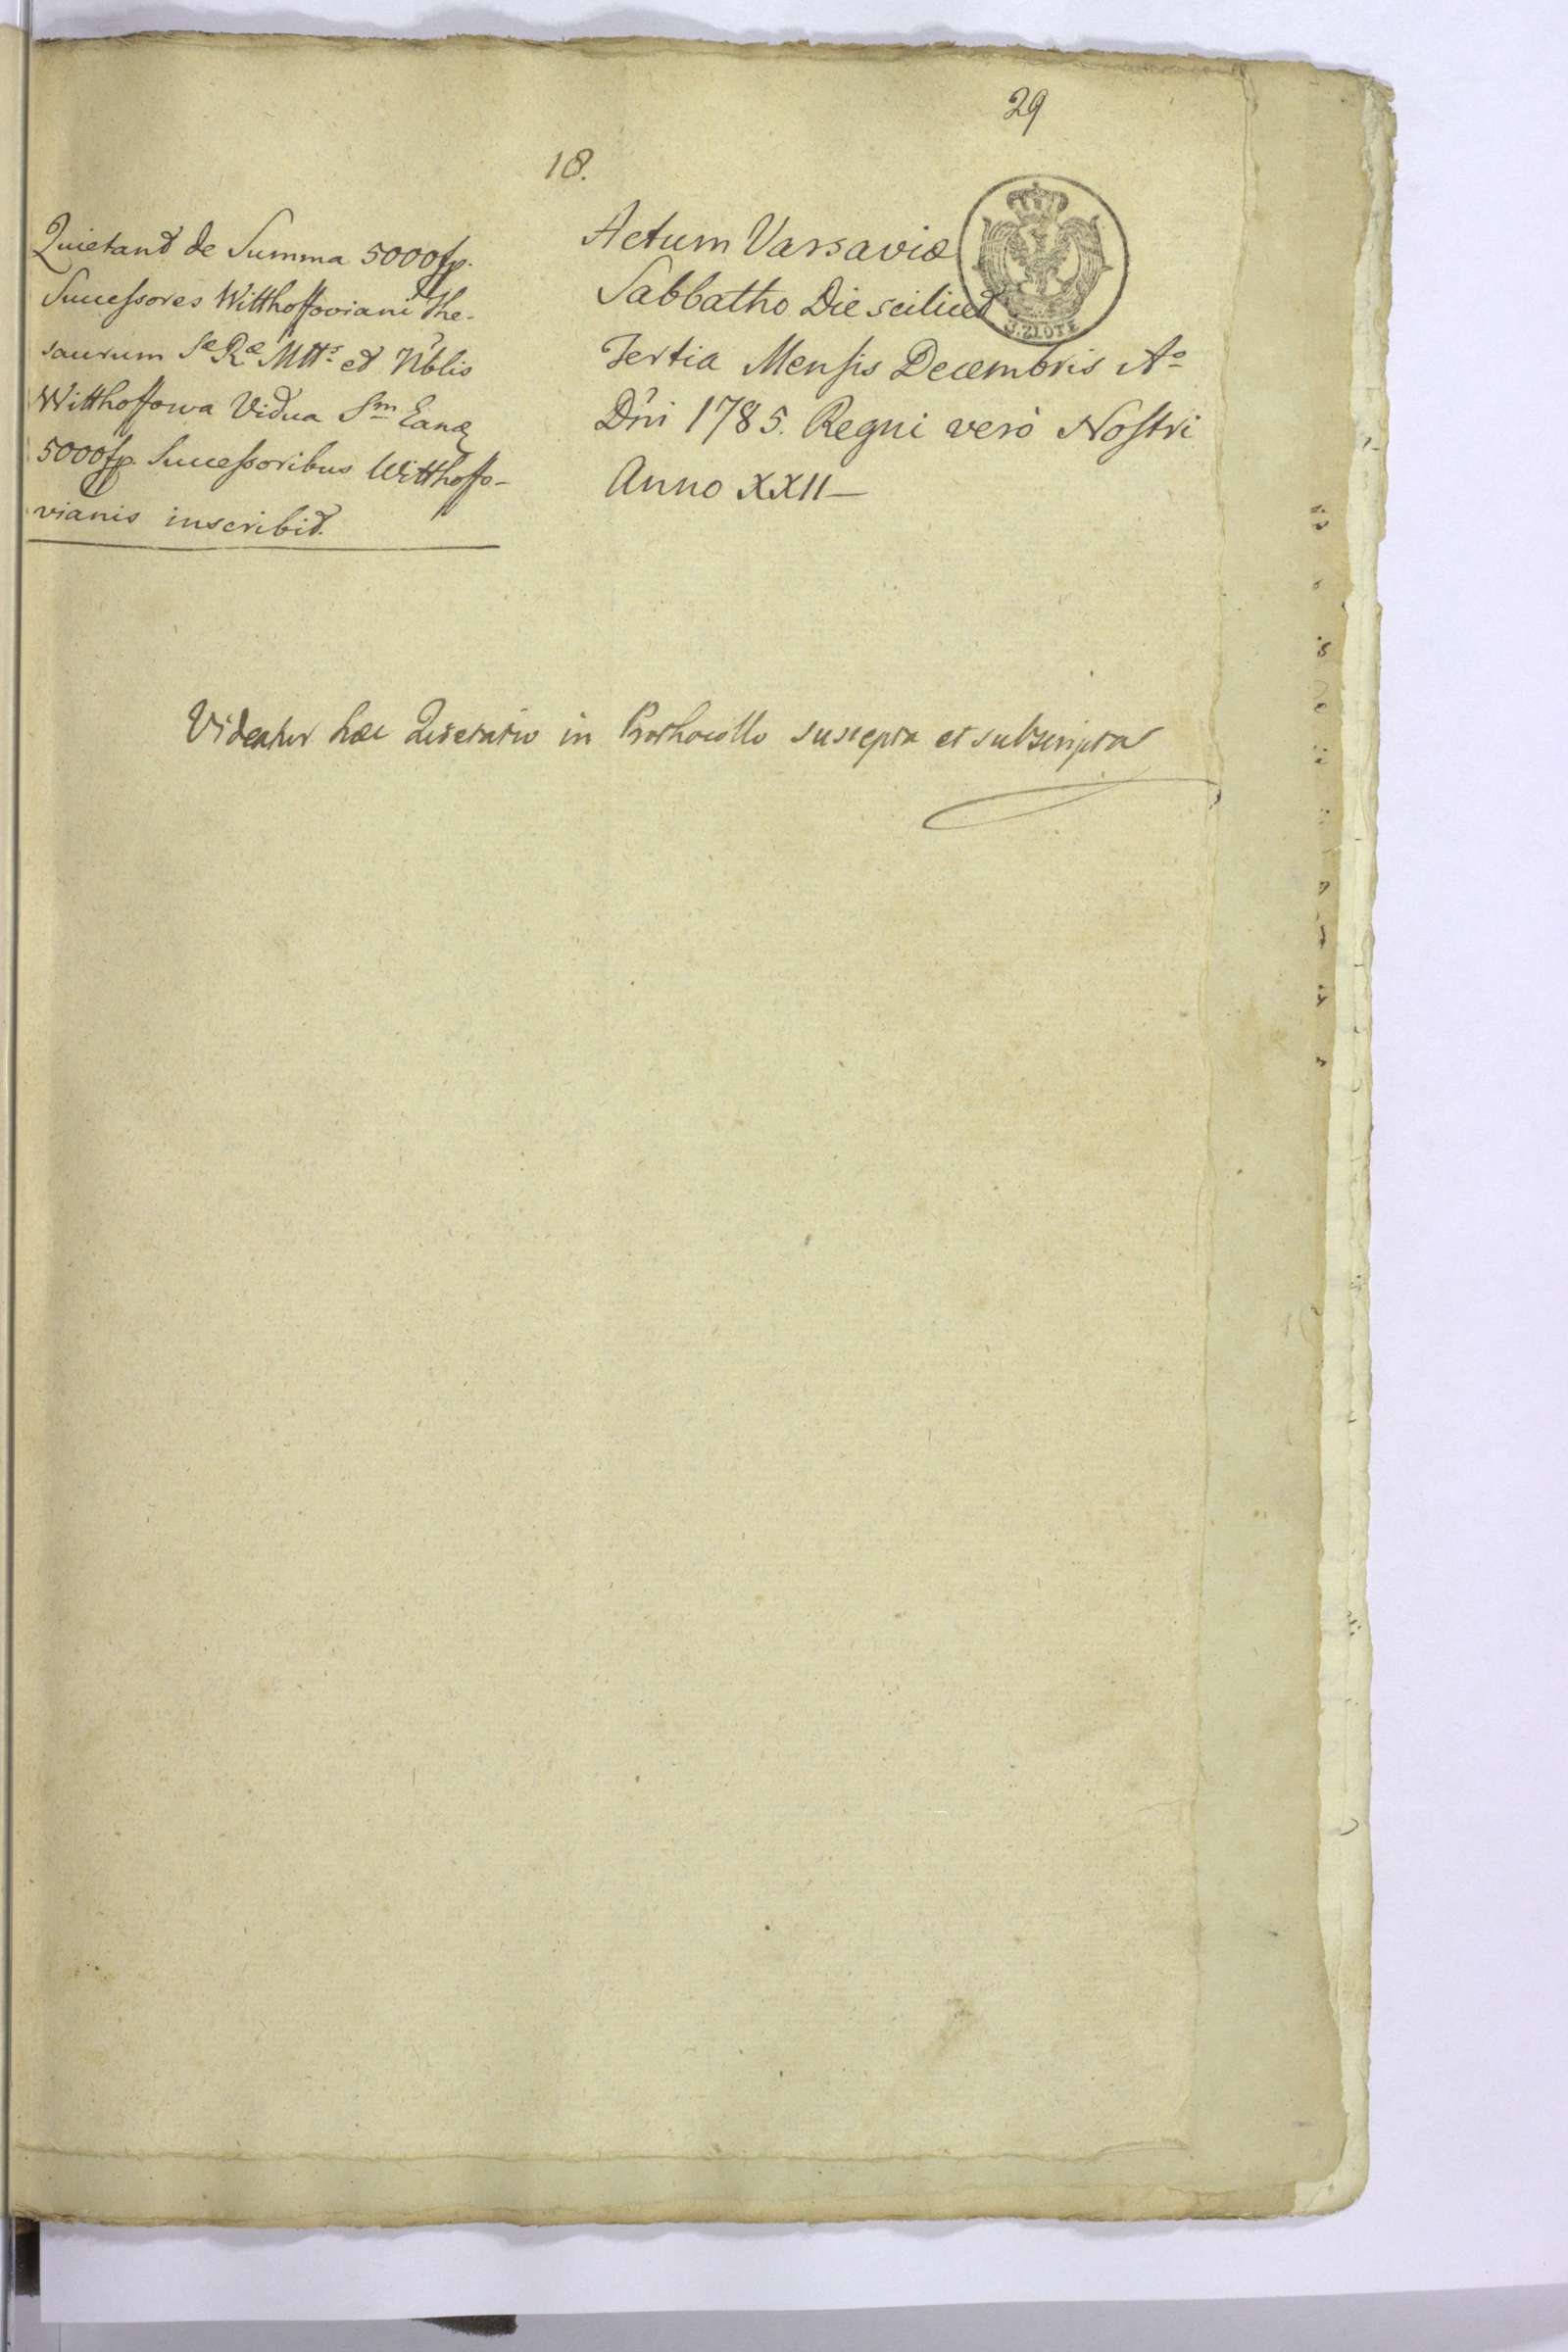 29
18.
Quietand de Summa 5000fp.
Succeſsores Witthoffoviani The-
saurum Sæ Ræ Mttˢ et N̄blis
Witthoffowa Vidua Sm̲ Eand
5000fp. Succeſsoribus Witthoffo-
vianis inscribit.
Actum Varsaviæ
Sabbatho Die scilicet
Tertia Menſis Decembris Aº
Dni 1785. Regni verò Noſtri
Anno XXII—
3. ZŁOTE
Videatur hæc in Prothocollo suscepta et subscripta